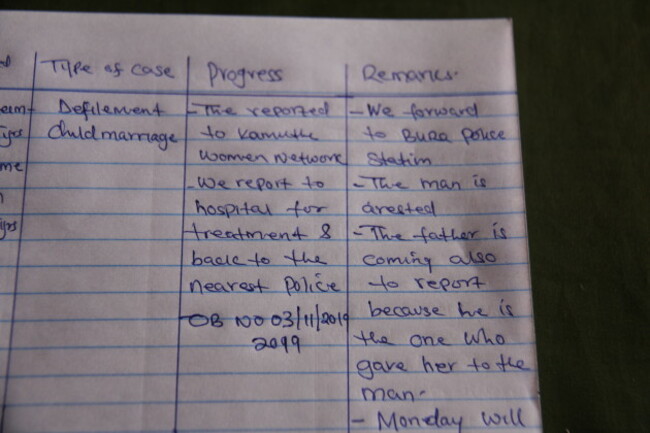 Type of case
Defilement
Child marriage
Progress
- The reported
to Kamuthe
Women Network
- We report to
hospital for
treatment &
back to the
nearest Police
OB NO 03/11/2019
2099
Remarks.
- We forward
to BURA Police
Station
- The man is
arested
- The father is
coming also
to report
because he is
the one who
gave her to the
man.
- Monday will